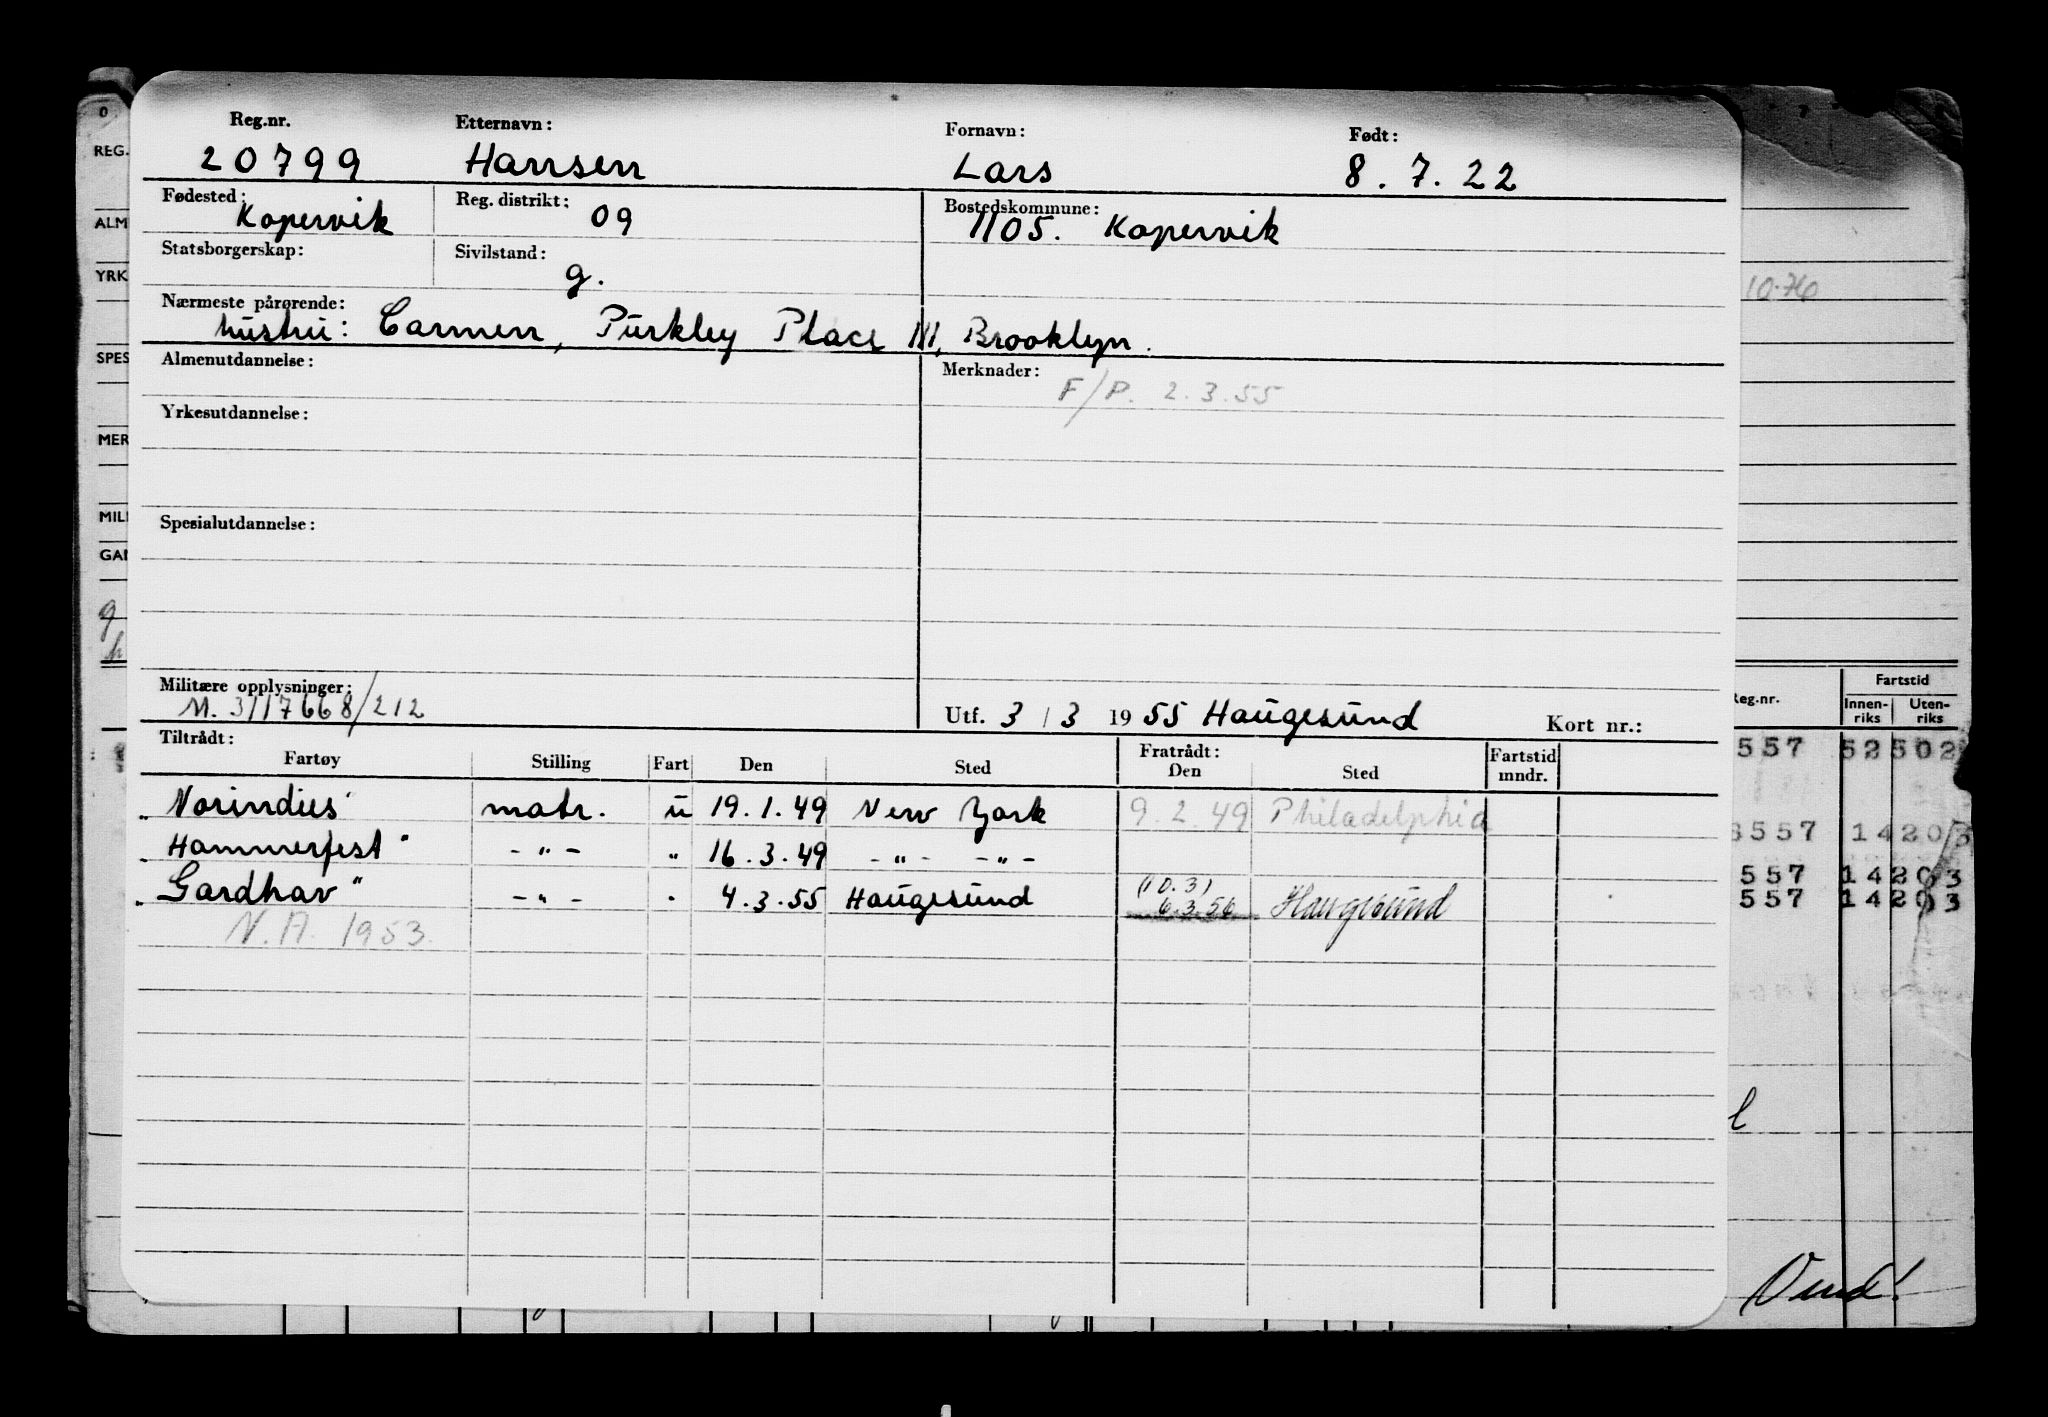 Reg.nr. Etternavn: Fornavn: Født:
20799 Hansen Lars 8.7.22
Fødested: Kopervik Reg. distrikt: 09 Bostedskommune: 1105. Kopervik
Statsborgerskap: Sivilstand: g.
Nærmeste pårørende:
hustru: Carmen, Purkley Place 111, Brooklyn.
Almenutdannelse: Merknader: F/P. 2.3.55
Yrkesutdannelse:
Spesialutdannelse:
Militære opplysninger:
M. 3117668/212 Utf. 3/3 1955 Haugesund Kort nr.:
Tiltrådt: Fratrådt: Fartstid
Fartøy Stilling Fart Den Sted Den Sted mndr.
"Norindies" matr. u 19.1.49 New York 9.2.49 Philadelphia
"Hammerfest" -"- " 16.3.49 -"- -"-
"Gardhav" -"- " 4.3.55 Haugesund (10.3) 6.3.56 Haugesund
N.A. 1953.
O
REG.
ALM
YRK
SPES
MER
MILI
GAN
g
h
10.76
Reg.nr. Fartstid
Innen-riks Uten-riks
557 52502
8557 14203
557 14203
557 14203
Vend!